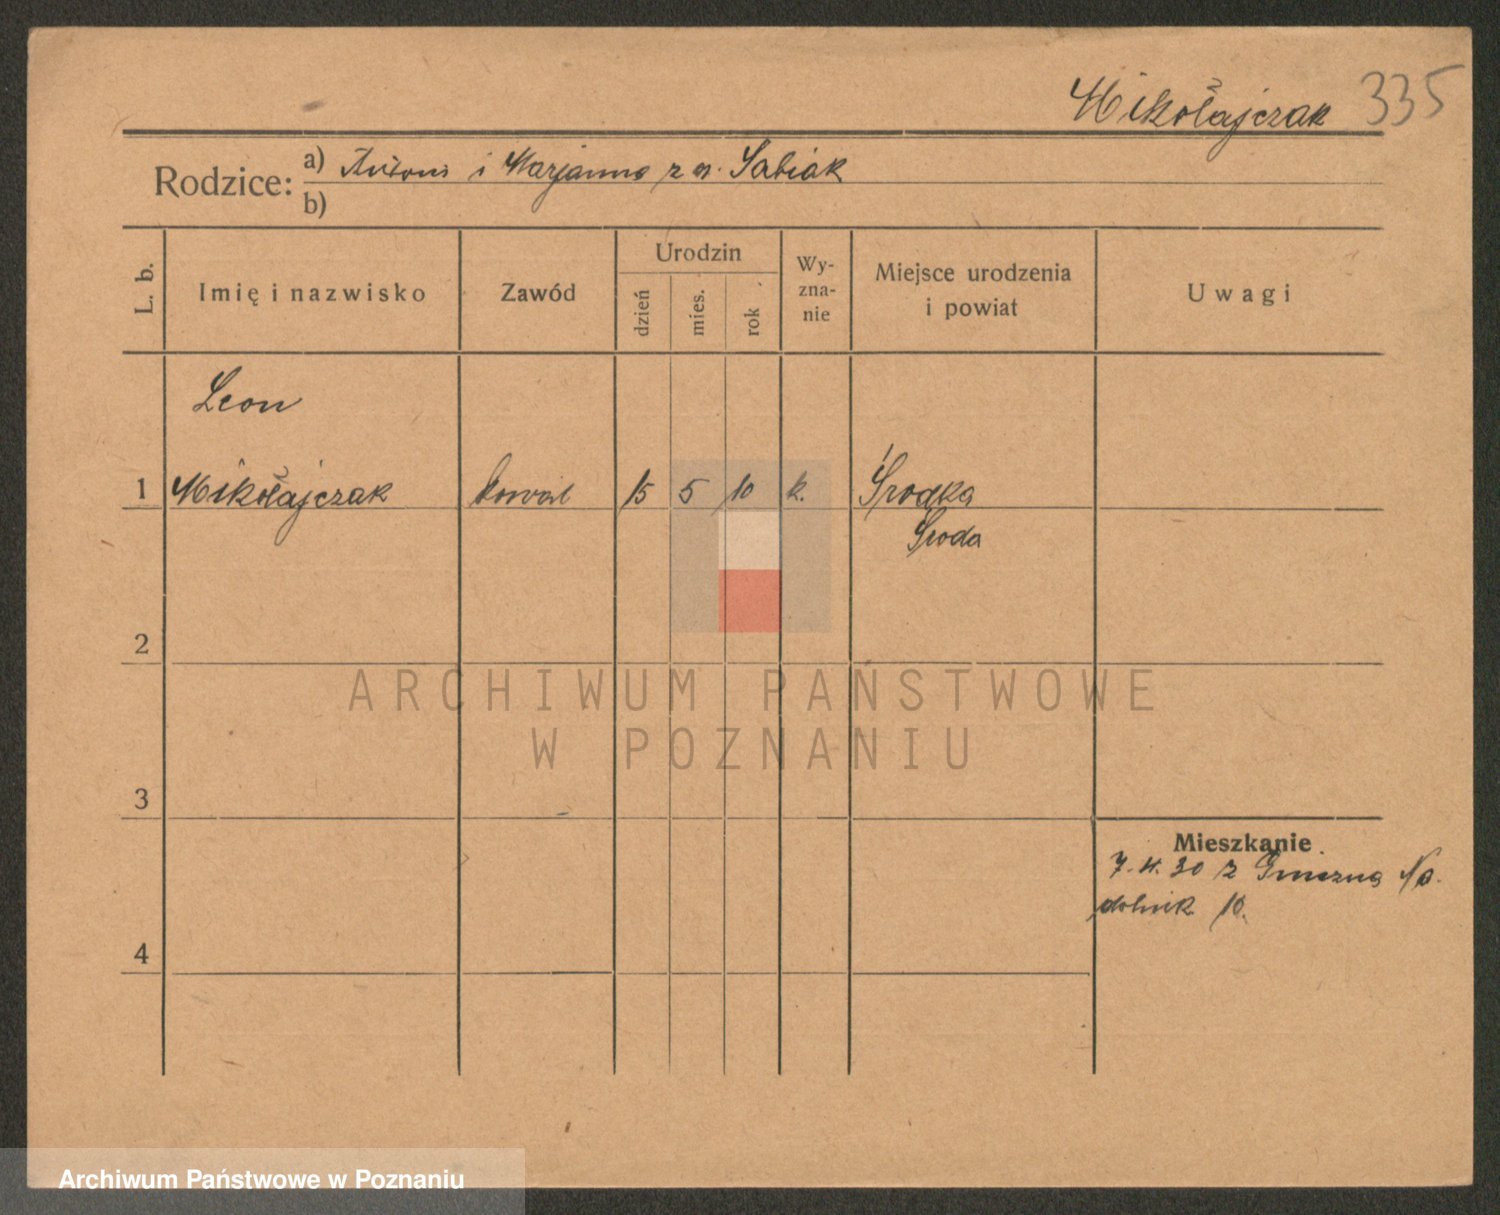 Mikołajczak 335
Rodzice: a) Antoni i Marjanna z d. Sabiak
b)
L. b.
Imię i nazwisko
Zawód
Urodzin
dzień
mies.
rok
Wy-
zna-
nie
Miejsce urodzenia
i powiat
Uwagi
Leon
1 Mikołajczak kowal 15 5 10 k. Środka
Środa
2
ARCHIWUM PAŃSTWOWE
W POZNANIU
3
Mieszkanie
7. 4. 30 z Gniezna Na
dolnik 10.
4
Archiwum Państwowe w Poznaniu